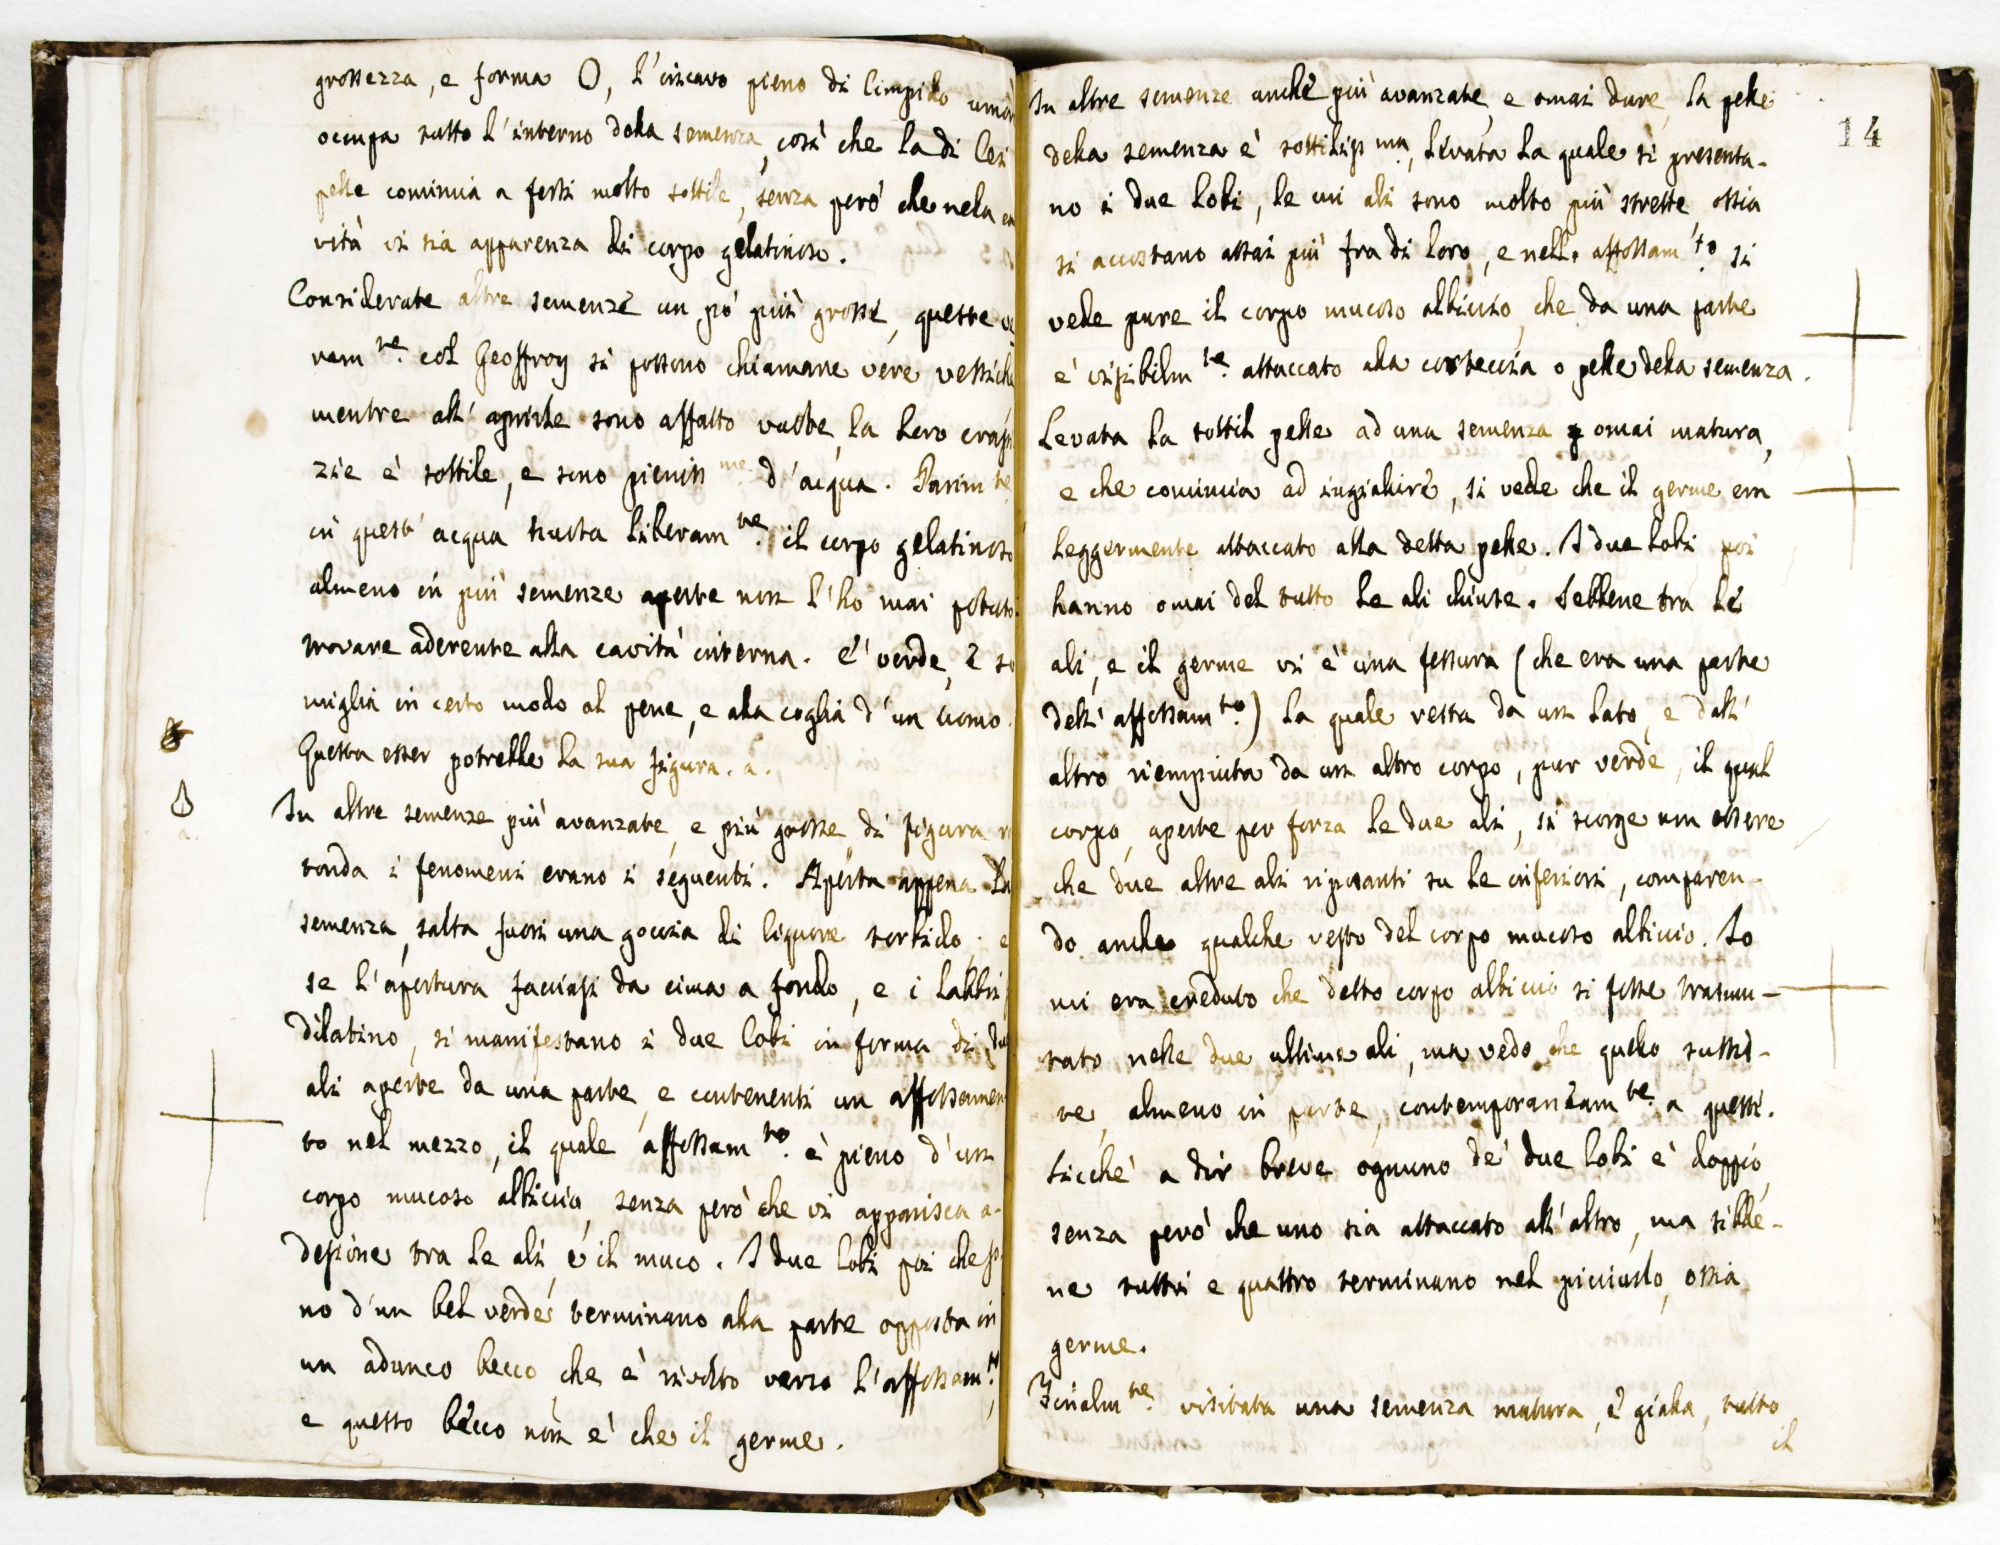 grossezza, e forma O, l'incavo pieno di limpido umor
occupa tutto l'interno della semenza, così che la di lei
pelle comincia a farsi molto sottile, senza però che nela ca
vità vi sia apparenza di corpo gelatinoso.
Considerate altre semenze un pò più grosse, queste ve
ram.te col Geoffroy si possono chiamare vere vessiche
mentre all'aprirle sono affatto vuote, la loro crassi
zie è sottile, e sono pieniss.me d'acqua. Parim.te
in quest'acqua nuota liberam.te il corpo gelatinoso
almeno in più semenze aperte non l'ho mai potuto
trovare aderente alla cavità interna. E' verde, e so
miglia in certo modo al pene, e alla coglia d'un uomo.
Questa esser potrebbe la sua figura. a.
a.
In altre semenze più avanzate, e più grosse, di figura ro
tonda i fenomeni erano i seguenti. Aperta appena la
semenza, salta fuori una goccia di liquore torbido; e
se l'apertura facciasi da cima a fondo, e i labbri si
dilatino, si manifestano i due lobi in forma di due
ali aperte da una parte, e contenenti un affossamen
to nel mezzo, il quale affossam.to è pieno d'un
corpo mucoso albiccio, senza però che vi apparisca a-
desione tra le ali, e il muco. I due lobi poi che so
no d'un bel verde, terminano alla parte opposta in
un adunco becco, che è rivolto verso l'affossam.to,
e questo becco non è che il germe.
14
In altre semenze anche più avanzate, e omai dure, la pelle
della semenza è sottilissma, levata la quale si presenta-
no i due lobi, le cui ali sono molto più strette, ossia
si accostano assai più fra di loro, e nell'affossam.to si
vede pure il corpo mucoso albiccio, che da una parte
è visibilm.te attaccato alla corteccia o pelle della semenza.
Levata la sottil pelle ad una semenza omai matura,
e che comincia ad ingiallire, si vede che il germe era
leggermente attaccato alla detta pelle. I due lobi poi
hanno omai del tutto le ali chiuse. Sebbene tra le
ali, e il germe vi è una fessura (che era una parte
dell'affossam.to) la quale resta da un lato, e dall'
altro riempiuta da un altro corpo, pur verde, il qual
corpo, aperte per forza le due ali, si scorge non essere
che due altre ali riposanti su le inferiori, comparen-
do anche qualche resto del corpo mucoso albiccio. Io
mi era creduto che detto corpo albiccio si fosse trasmu-
tato nelle due ultime ali, ma vedo che quello sussis-
te, almeno in parte, contemporaneam.te a queste.
Sicchè a dir breve ognuno de' due lobi è doppio,
senza però che uno sia attaccato all'altro, ma sibbe-
ne tutti e quattro terminano nel picciuolo, ossia
germe.
Finalm.te visitata una semenza matura, e gialla, tutto
il